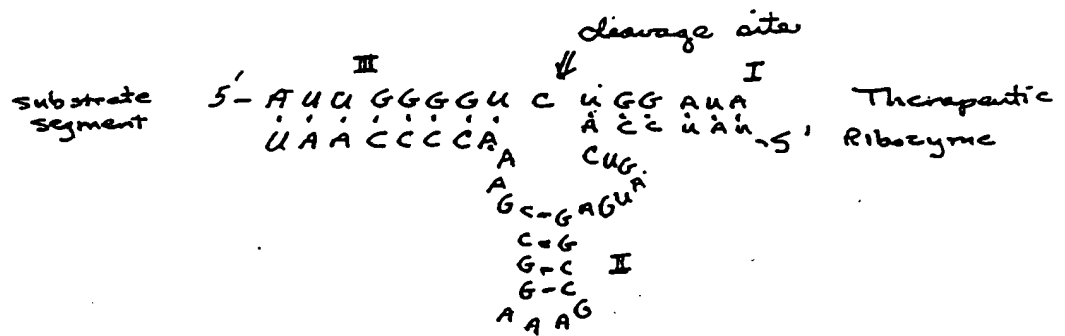 cleavage site
III
I
substrate segment
5'- A U U G G G G U C U G G A U A
Therapeutic Ribozyme
U A A C C C C A
A C C U A U -5'
A
C U G
A
A
G C - G A G U
C = G
G - C
II
G - C
A A A G